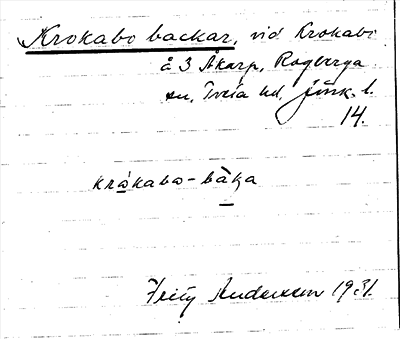 Krokabo backar, vid Krokabo
å 3 Åkarp, Rogberga
sn, Tveta hd, Jönk. l.
14.
krókabo-bàka
Fritz Andersson 1931.